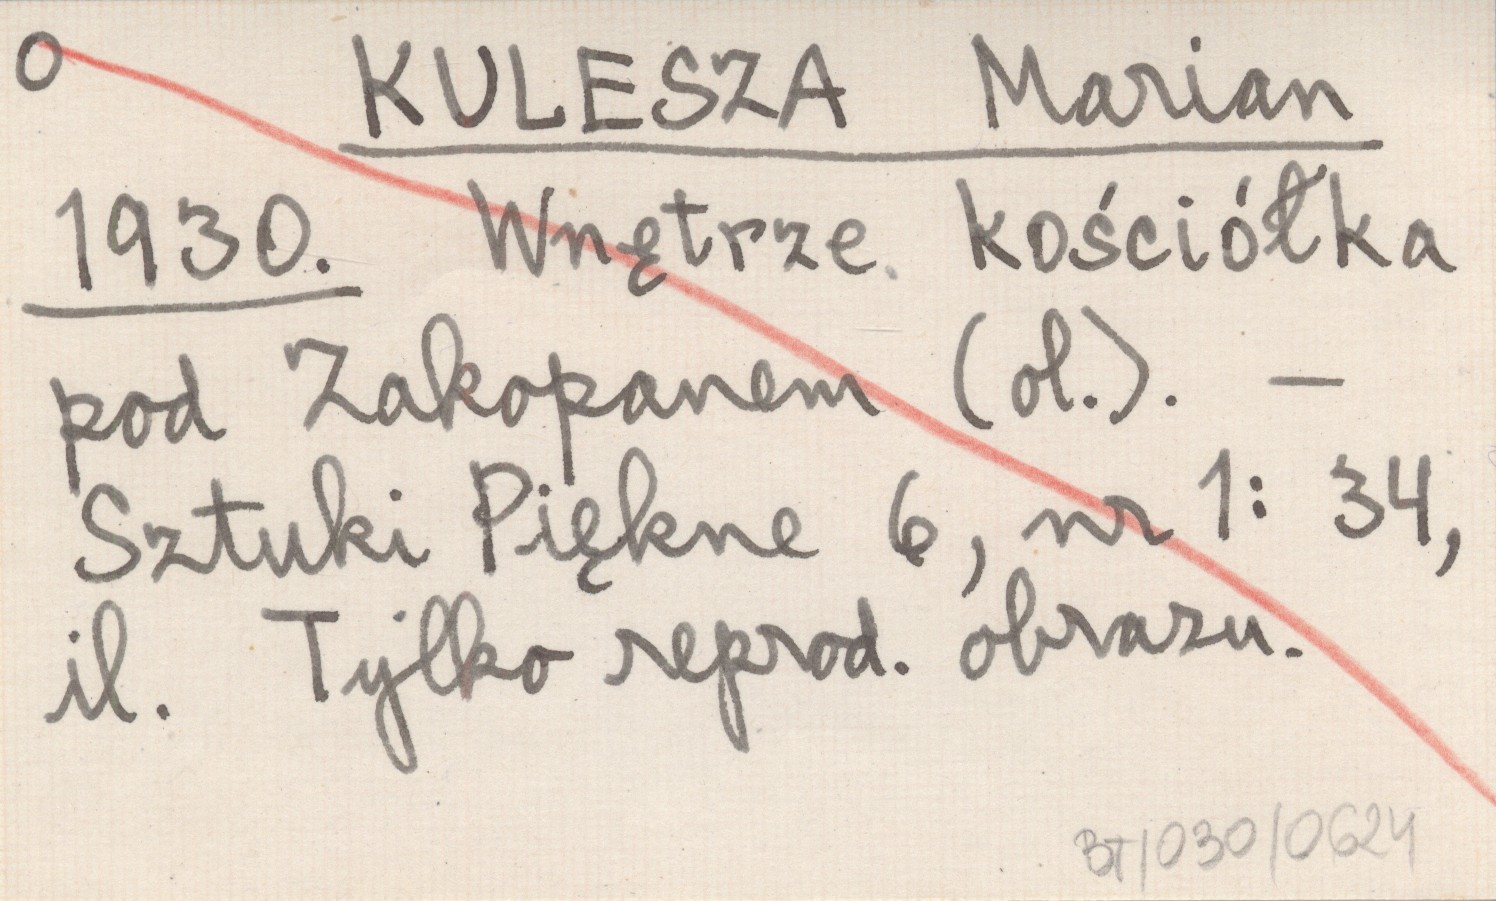 O KULESZA Marian
1930. Wnętrze kościółka
pod Zakopanem (ol.). —
Sztuki Piękne 6, nr 1: 34,
il. Tylko reprod. obrazu.
BT/030/0624